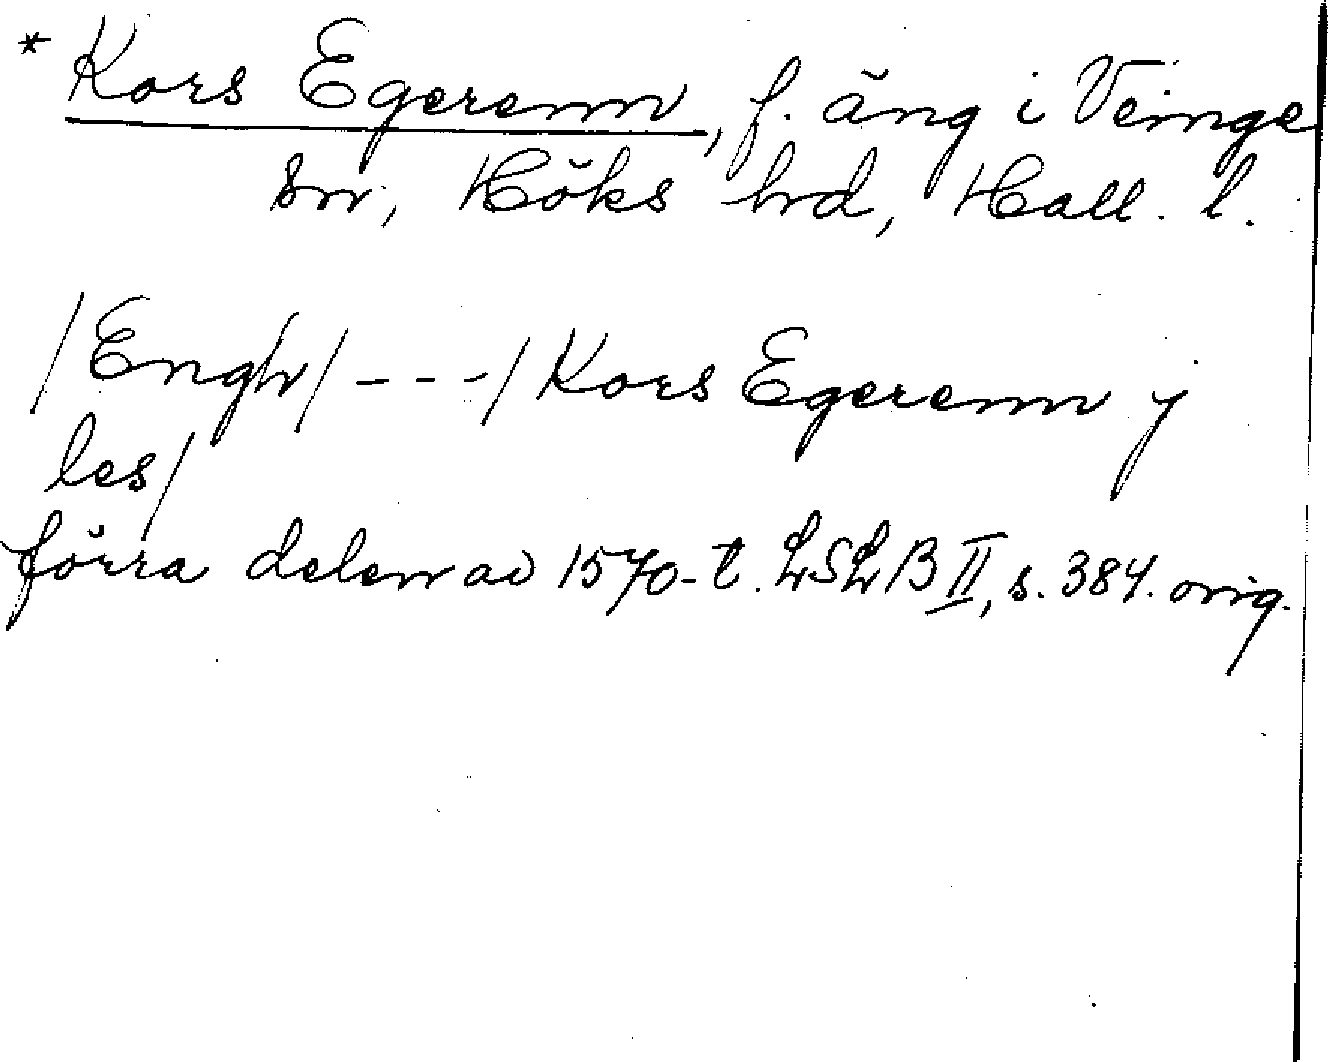 * Kors Egerenn, f. äng i Veinge
sn, Höks hd, Hall. l.
/Engh/---/Kors Egerenn j
les/
förra delen av 1570-t. LSLB II, s. 384. orig.